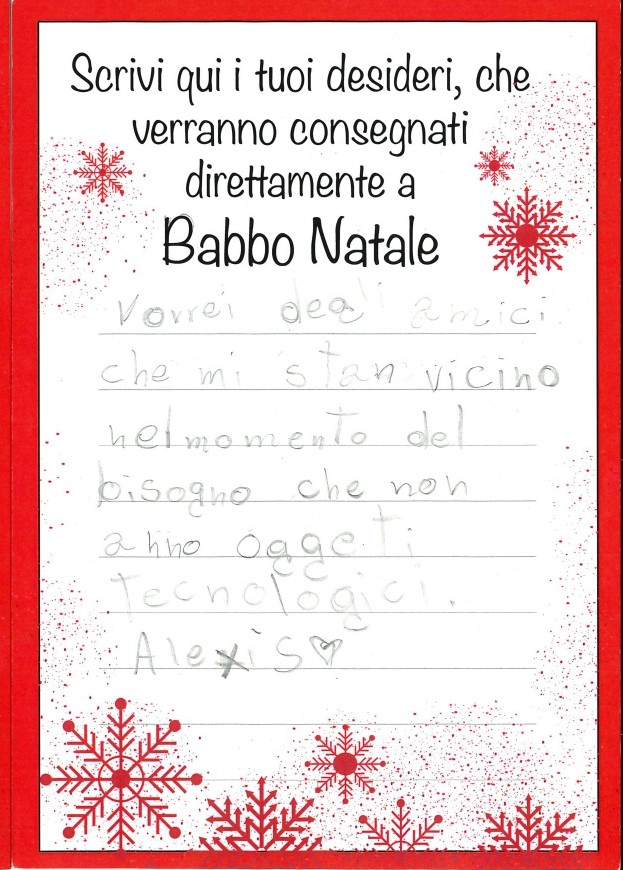 Scrivi qui i tuoi desideri, che
verranno consegnati
direttamente a
Babbo Natale
vorrei degli amici
che mi stan vicino
nel momento del
bisogno che non
anno oggeti
tecnologici.
Alexis♡